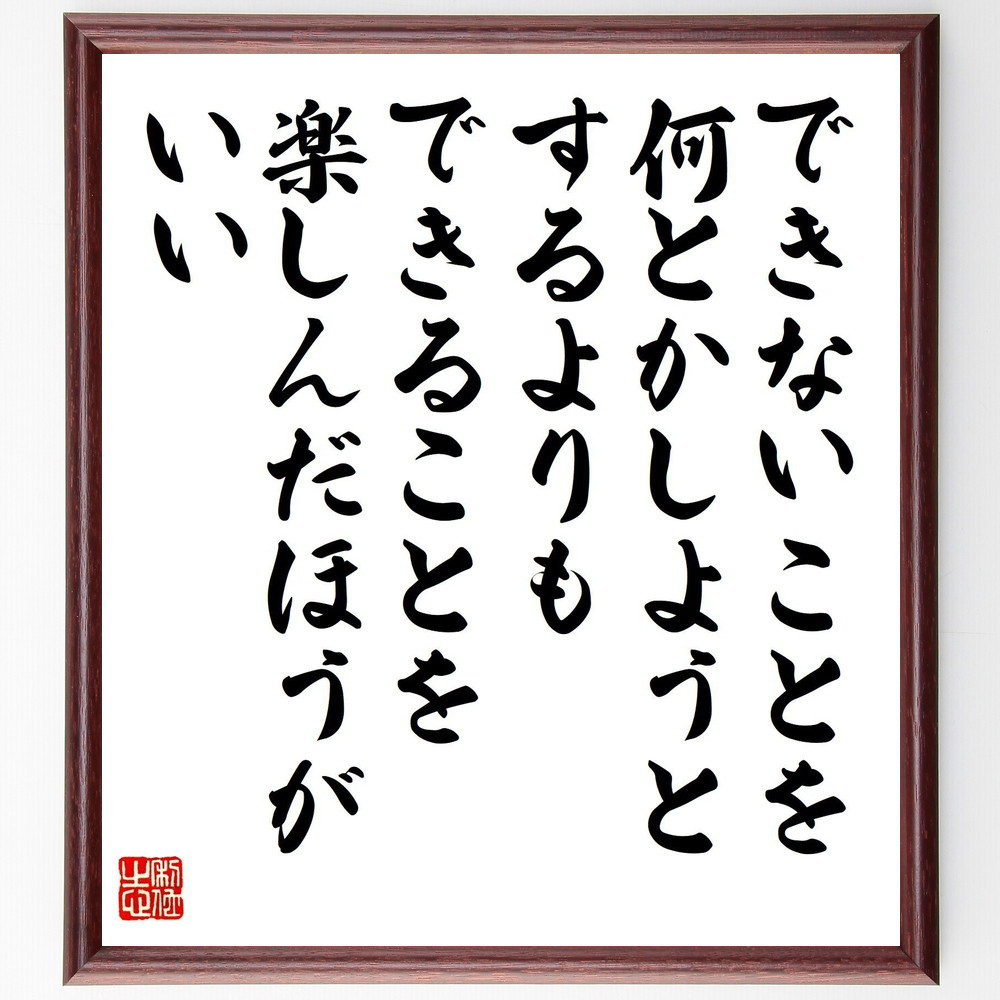 できないことを
何とかしようと
するよりも
できることを
楽しんだほうが
いい